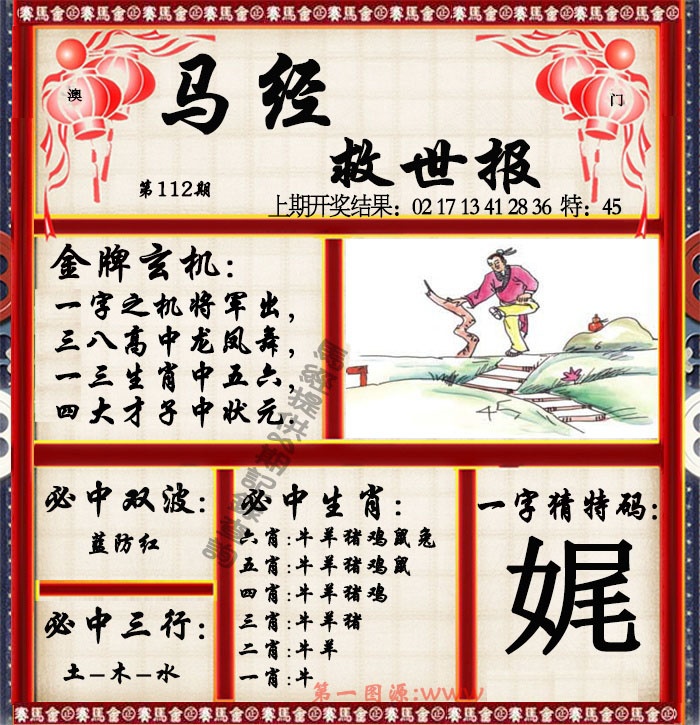 賽馬會正賽馬會正賽馬會正賽馬會正
澳
门
马经
救世报
第112期
上期开奖结果：02 17 13 41 28 36 特：45
金牌玄机：
一字之机将军出，
三八高中龙凤舞，
一三生肖中五六，
四大才子中状元.
45
必中双波：
蓝防红
必中三行：
土–木–水
必中生肖：
六肖：牛羊猪鸡鼠兔
五肖：牛羊猪鸡鼠
四肖：牛羊猪鸡
三肖：牛羊猪
二肖：牛羊
一肖：牛
一字猜特码：
娓
第一图源：www